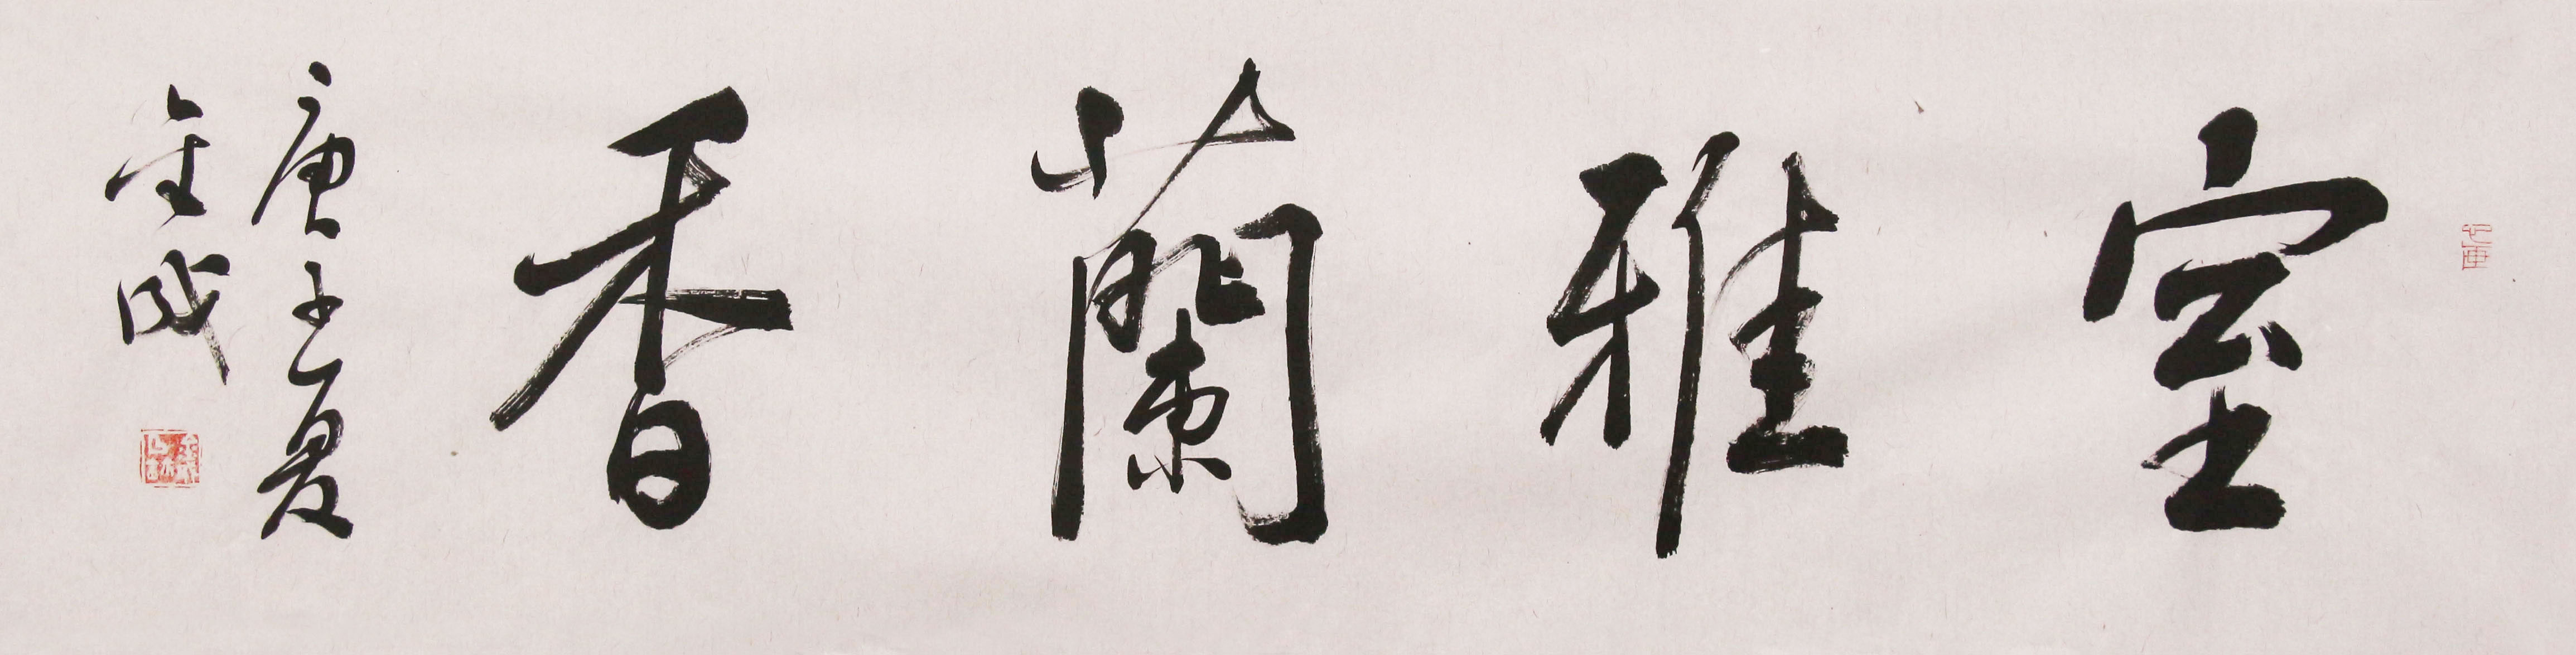 室雅蘭香
庚子夏
金成